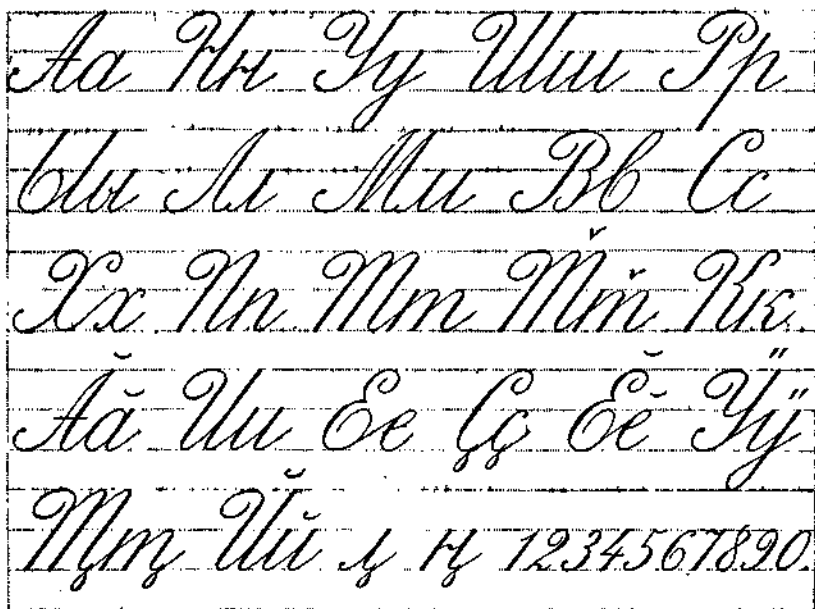 Аа Нн Уу Шш Рр
Ыы Лл Мм Вв Сс
Хх Пп Тт Т̌т̌ Кк
Ӑӑ Ии Ее Ҫҫ Ӗӗ Ӳӳ
Ꚋꚋ Йй ԡ ԣ 1234567890.